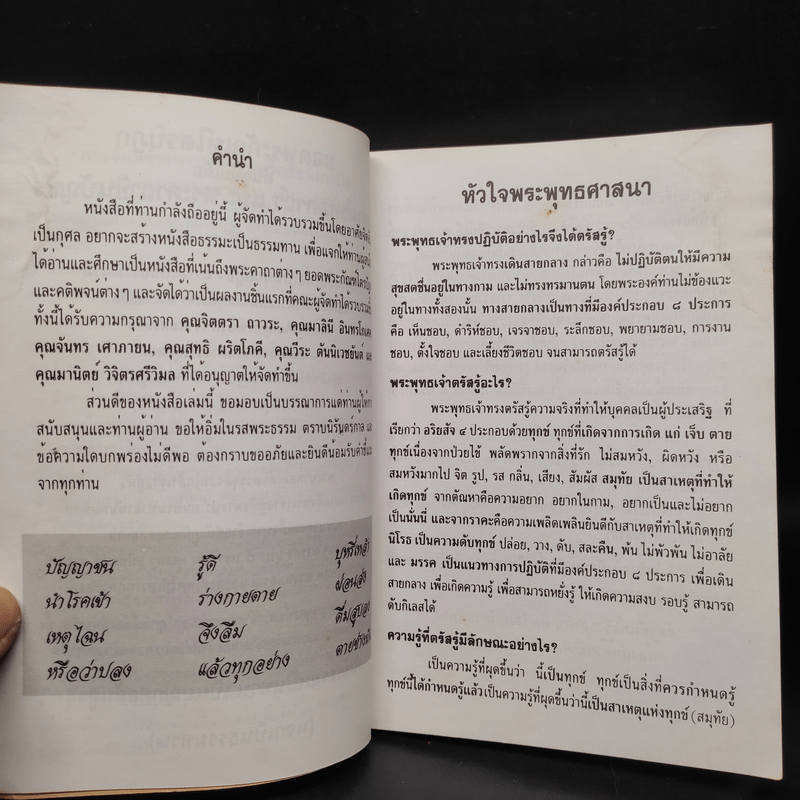 คำนำ
หนังสือที่ท่านกำลังถืออยู่นี้ ผู้จัดทำได้รวบรวมขึ้นโดยอาศัย
เป็นกุศล อยากจะสร้างหนังสือธรรมะเป็นธรรมทาน เพื่อแจกให้ท่าน
ได้อ่านและศึกษาเป็นหนังสือที่เน้นถึงพระคาถาต่างๆ ยอดพระกัณฑ์
และคติพจน์ต่างๆ และจัดได้ว่าเป็นผลงานชิ้นแรกที่คณะผู้จัดทำได้รวบรวม
ทั้งนี้ได้รับความกรุณาจาก คุณจิตตรา ถาวระ, คุณมาลินี
คุณจันทร เศาภายน, คุณสุทธิ ผริตโภคี, คุณวีระ ตันนิเวชยันต์
คุณมานิตย์ วิจิตรศรีวิมล ที่ได้อนุญาตให้จัดทำขึ้น
ส่วนดีของหนังสือเล่มนี้ ขอมอบเป็นบรรณาการแด่ท่านผู้ให้การ
สนับสนุนและท่านผู้อ่าน ขอให้อิ่มในรสพระธรรม ตราบนิรันดร์กาล และ
ข้อความใดบกพร่องไม่ดีพอ ต้องกราบขออภัยและยินดีน้อมรับ
จากทุกท่าน
ปัญญาชน รู้ดี บุหรี่เหล้า
นำโรคเข้า ร่างกายตาย ผ่อนส่ง
เหตุไฉน จึงลืม
หรือว่าปลง แล้วทุกอย่าง
หัวใจพระพุทธศาสนา
พระพุทธเจ้าทรงปฏิบัติอย่างไรจึงได้ตรัสรู้?
พระพุทธเจ้าทรงเดินสายกลาง กล่าวคือ ไม่ปฏิบัติตนให้มีความ
สุขสดชื่นอยู่ในทางกาม และไม่ทรงทรมานตน โดยพระองค์ท่านไม่ข้องแวะ
อยู่ในทางทั้งสองนั้น ทางสายกลางเป็นทางที่มีองค์ประกอบ ๘ ประการ
คือ เห็นชอบ, ดำริห์ชอบ, เจรจาชอบ, ระลึกชอบ, พยายามชอบ, การงาน
ชอบ, ตั้งใจชอบ และเลี้ยงชีวิตชอบ จนสามารถตรัสรู้ได้
พระพุทธเจ้าตรัสรู้อะไร?
พระพุทธเจ้าทรงตรัสรู้ความจริงที่ทำให้บุคคลเป็นผู้ประเสริฐ ที่
เรียกว่า อริยสัจ ๔ ประกอบด้วยทุกข์ ทุกข์ที่เกิดจากการเกิด แก่ เจ็บ ตาย
ทุกข์เนื่องจากป่วยไข้ พลัดพรากจากสิ่งที่รัก ไม่สมหวัง, ผิดหวัง หรือ
สมหวังมากไป จิต รูป, รส กลิ่น, เสียง, สัมผัส สมุทัย เป็นสาเหตุที่ทำให้
เกิดทุกข์ จากตัณหาคือความอยาก อยากในกาม, อยากเป็นและไม่อยาก
เป็นนั่นนี่ และจากราคะคือความเพลิดเพลินยินดีกับสาเหตุที่ทำให้เกิดทุกข์
นิโรธ เป็นความดับทุกข์ ปล่อย, วาง, ดับ, สละคืน, พ้น ไม่พัวพัน ไม่อาลัย
และ มรรค เป็นแนวทางการปฏิบัติที่มีองค์ประกอบ ๘ ประการ เพื่อเดิน
สายกลาง เพื่อเกิดความรู้ เพื่อสามารถหยั่งรู้ ให้เกิดความสงบ รอบรู้ สามารถ
ดับกิเลสได้
ความรู้ที่ตรัสรู้มีลักษณะอย่างไร?
เป็นความรู้ที่ผุดขึ้นว่า นี้เป็นทุกข์ ทุกข์เป็นสิ่งที่ควรกำหนดรู้
ทุกข์นี้ได้กำหนดรู้แล้วเป็นความรู้ที่ผุดขึ้นว่านี้เป็นสาเหตุแห่งทุกข์ (สมุทัย)